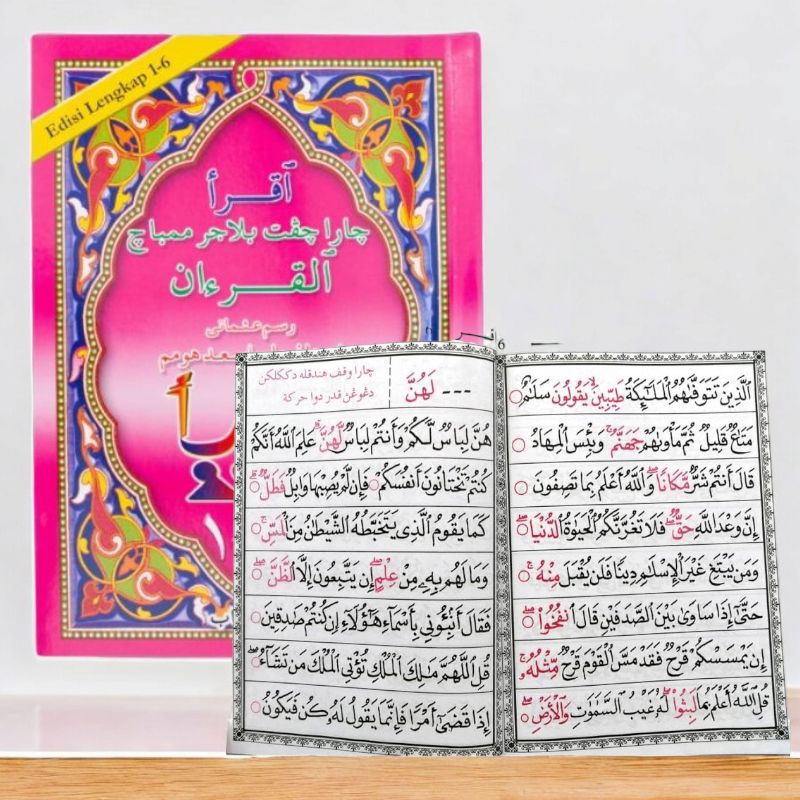 Edisi Lengkap 1-6
ٱقـــرأ
چارا چڤت بلاجر ممباچ
ٱلقــرءان
رسم عثماني
6
ٱلَّذِينَ تَتَوَفَّىٰهُمُ ٱلْمَلَـٰٓئِكَةُ طَيِّبِينَ ۙ يَقُولُونَ سَلَـٰمٌ
مَتَاعٌ قَلِيلٌ ثُمَّ مَأْوَىٰهُمْ جَهَنَّمُ ۚ وَبِئْسَ ٱلْمِهَادُ
قَالَ أَنتُمْ شَرٌّ مَّكَانًا ۖ وَٱللَّهُ أَعْلَمُ بِمَا تَصِفُونَ
إِنَّ وَعْدَ ٱللَّهِ حَقٌّ ۖ فَلَا تَغُرَّنَّكُمُ ٱلْحَيَوٰةُ ٱلدُّنْيَا ۖ
وَمَن يَبْتَغِ غَيْرَ ٱلْإِسْلَـٰمِ دِينًا فَلَن يُقْبَلَ مِنْهُ ۚ
حَتَّىٰٓ إِذَا سَاوَىٰ بَيْنَ ٱلصَّدَفَيْنِ قَالَ ٱنفُخُوا۟ ۖ
إِن يَمْسَسْكُمْ قَرْحٌ فَقَدْ مَسَّ ٱلْقَوْمَ قَرْحٌ مِّثْلُهُۥ ۚ
قُلِ ٱللَّهُ أَعْلَمُ بِمَا لَبِثُوا۟ ۖ لَهُۥ غَيْبُ ٱلسَّمَـٰوَٰتِ وَٱلْأَرْضِ ۖ
--- لَهُنَّ
چارا وقف هندقله دككلكن
دڠوڠن قدر دوا حركة
هُنَّ لِبَاسٌ لَّكُمْ وَأَنتُمْ لِبَاسٌ لَّهُنَّ ۗ عَلِمَ ٱللَّهُ أَنَّكُمْ
كُنتُمْ تَخْتَانُونَ أَنفُسَكُمْ فَإِن لَّمْ يُصِبْهَا وَابِلٌ فَطَلٌّ ۗ
كَمَا يَقُومُ ٱلَّذِى يَتَخَبَّطُهُ ٱلشَّيْطَـٰنُ مِنَ ٱلْمَسِّ ۚ
وَمَا لَهُم بِهِۦ مِنْ عِلْمٍ ۖ إِن يَتَّبِعُونَ إِلَّا ٱلظَّنَّ ۖ
فَقَالَ أَنۢبِـُٔونِى بِأَسْمَآءِ هَـٰٓؤُلَآءِ إِن كُنتُمْ صَـٰدِقِينَ
قُلِ ٱللَّهُمَّ مَـٰلِكَ ٱلْمُلْكِ تُؤْتِى ٱلْمُلْكَ مَن تَشَآءُ
إِذَا قَضَىٰٓ أَمْرًا فَإِنَّمَا يَقُولُ لَهُۥ كُن فَيَكُونُ